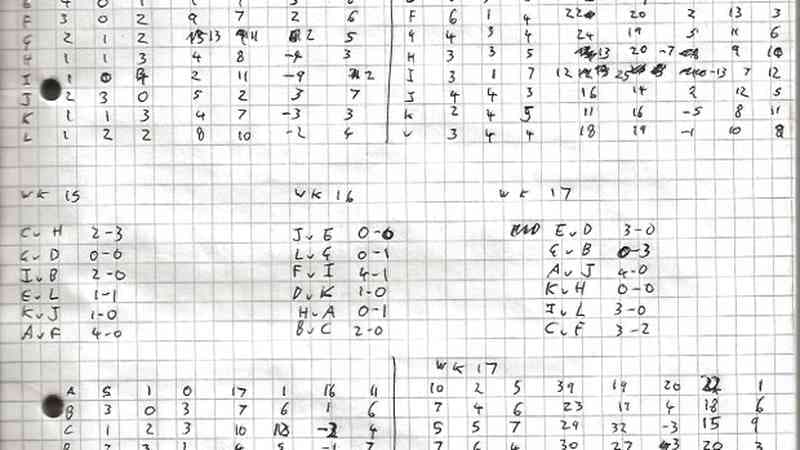 F 3 0 2 9 7 2 6 F 6 1 4 22 20 2 13 3
G 2 1 2 13 11 2 5 G 4 3 4 24 19 5 11 6
H 1 1 3 4 8 -4 3 H 3 3 5 13 20 -7 9 10
I 1 0 4 2 11 -9 2 I 3 1 7 12 25 -13 7 12
J 2 3 0 5 2 3 7 J 4 4 3 16 14 2 12 5
K 1 1 3 4 7 -3 3 K 2 4 5 11 16 -5 8 11
L 1 2 2 8 10 -2 4 L 3 4 4 18 19 -1 10 8
WK 15 WK 16 WK 17
C v H 2-3 J v E 0-0 E v D 3-0
G v D 0-0 L v G 0-1 G v B 0-3
I v B 2-0 F v I 4-1 A v J 4-0
E v L 1-1 D v K 1-0 K v H 0-0
K v J 1-0 H v A 0-1 I v L 3-0
A v F 4-0 B v C 2-0 C v F 3-2
WK 17
A 5 1 0 17 1 16 11 10 2 5 39 19 20 22 1
B 3 0 3 7 6 1 6 7 4 6 23 4 18 6
C 1 2 3 10 -2 4 5 5 7 29 32 -3 15 9
7 6 4 30 27 3 20 3